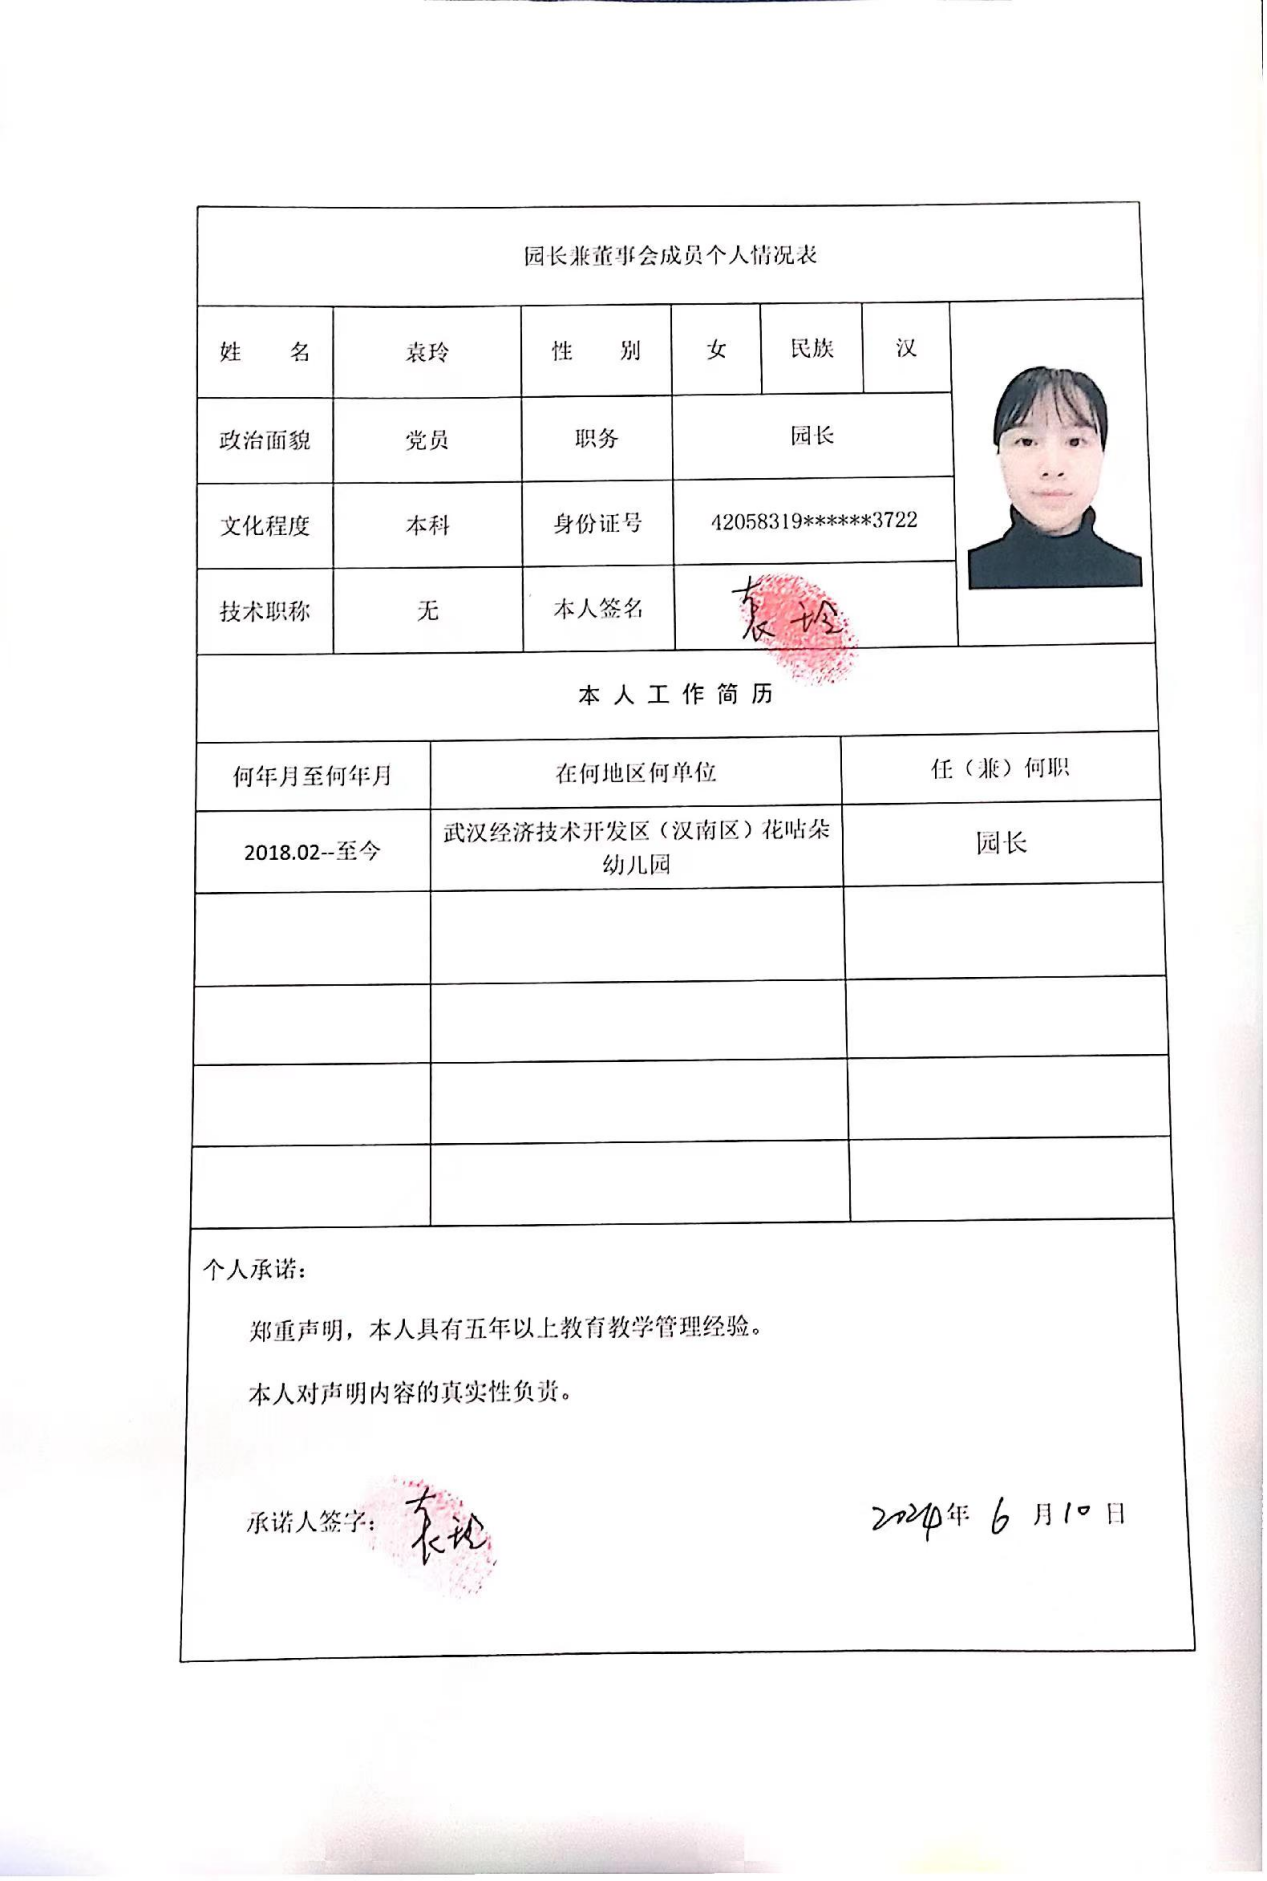 园长兼董事会成员个人情况表
姓 名 袁玲 性 别 女 民族 汉
政治面貌 党员 职务 园长
文化程度 本科 身份证号 42058319******3722
技术职称 无 本人签名 袁玲
本人工作简历
何年月至何年月 在何地区何单位 任（兼）何职
2018.02--至今 武汉经济技术开发区（汉南区）花咕朵 园长
幼儿园
个人承诺：
郑重声明，本人具有五年以上教育教学管理经验。
本人对声明内容的真实性负责。
承诺人签字：袁玲 2024年 6 月10日